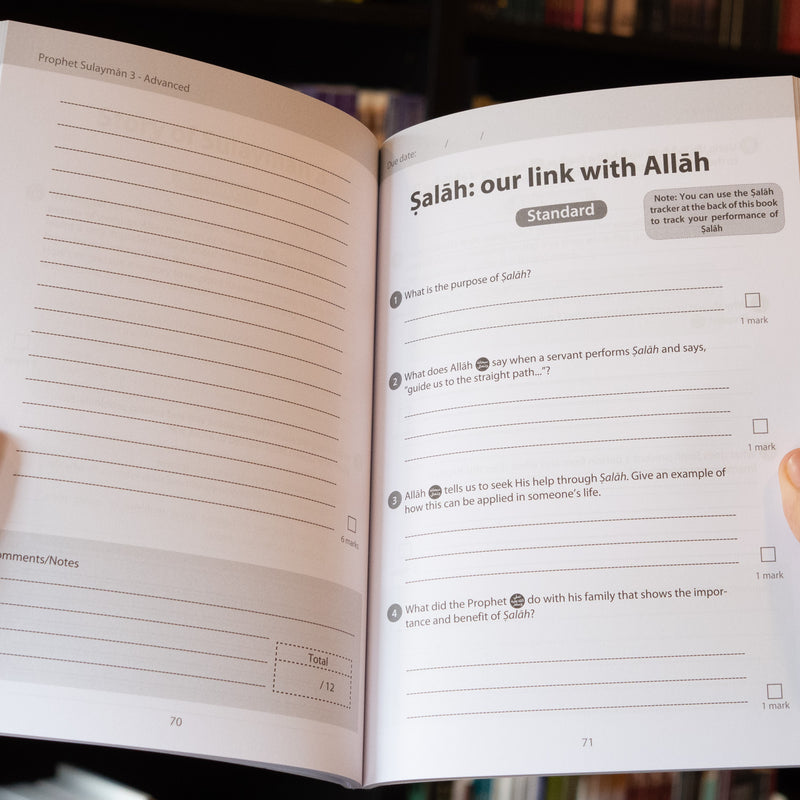 Prophet Sulaymān 3 - Advanced
6 marks
omments/Notes
Total
/ 12
70
Due date: / /
Ṣalāh: our link with Allāh
Standard
Note: You can use the Ṣalāh
tracker at the back of this book
to track your performance of
Ṣalāh
1 What is the purpose of Ṣalāh?
1 mark
2 What does Allāh say when a servant performs Ṣalāh and says,
"guide us to the straight path..."?
1 mark
3 Allāh tells us to seek His help through Ṣalāh. Give an example of
how this can be applied in someone's life.
1 mark
4 What did the Prophet do with his family that shows the impor-
tance and benefit of Ṣalāh?
1 mark
71